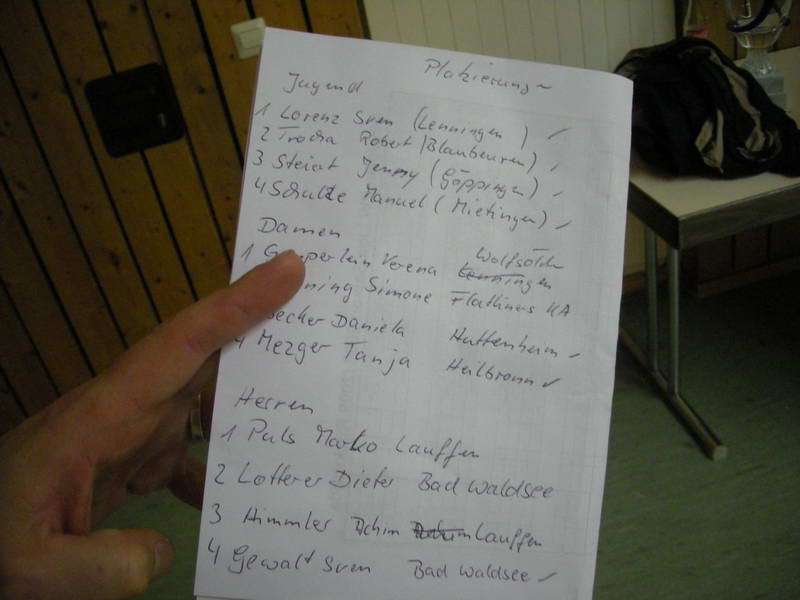 Platzierung
Jugend
1 Lorenz Sven (Lenningen)
2 Trocha Robert (Blaubeuren)
3 Steiat Jenny (Göppingen)
4 Schulze Manuel (Mietingen)
Damen Wolfsölden
1 Verena Lenningen
Simone Flatliners KA
Becker Daniela Huttenheim
4 Mezger Tanja Heilbronn
Herren
1 Puls Marko Lauffen
2 Lotterer Dieter Bad Waldsee
3 Himmler Achim Lauffen
4 Gewalt Sven Bad Waldsee